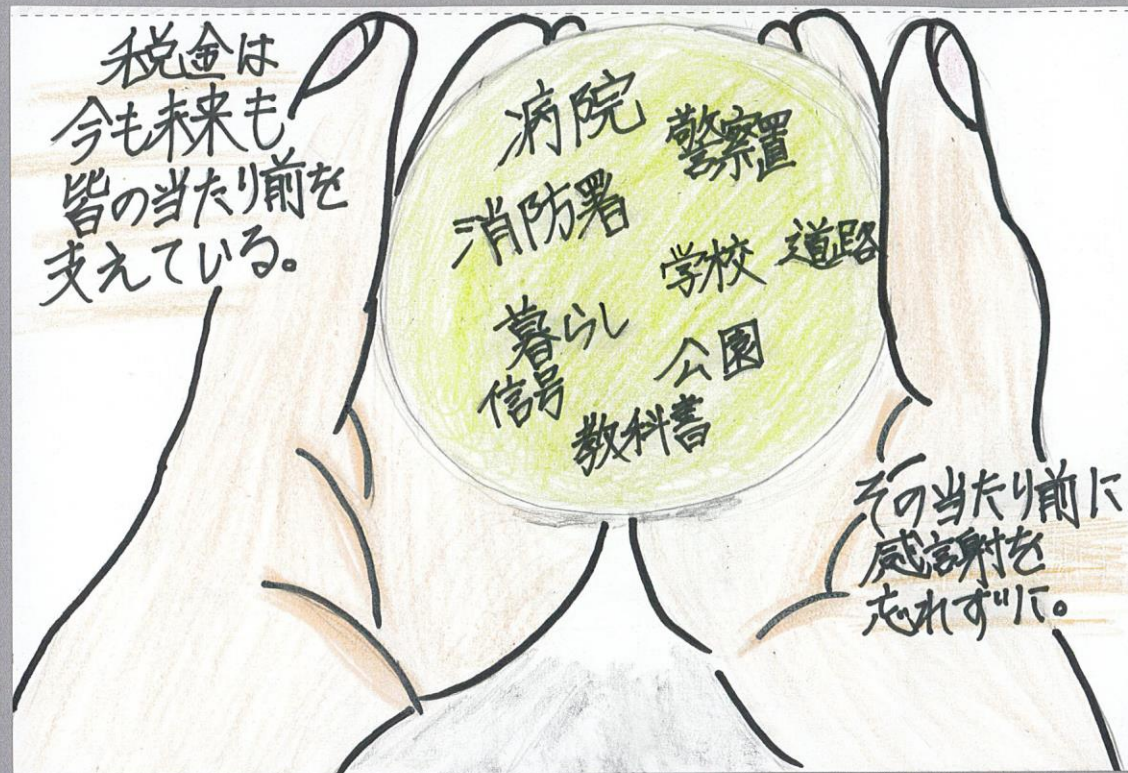 税金は
今も未来も
皆の当たり前を
支えている。
病院
警察署
消防署
学校
道路
暮らし
公園
信号
教科書
その当たり前に
感謝を
忘れずに。